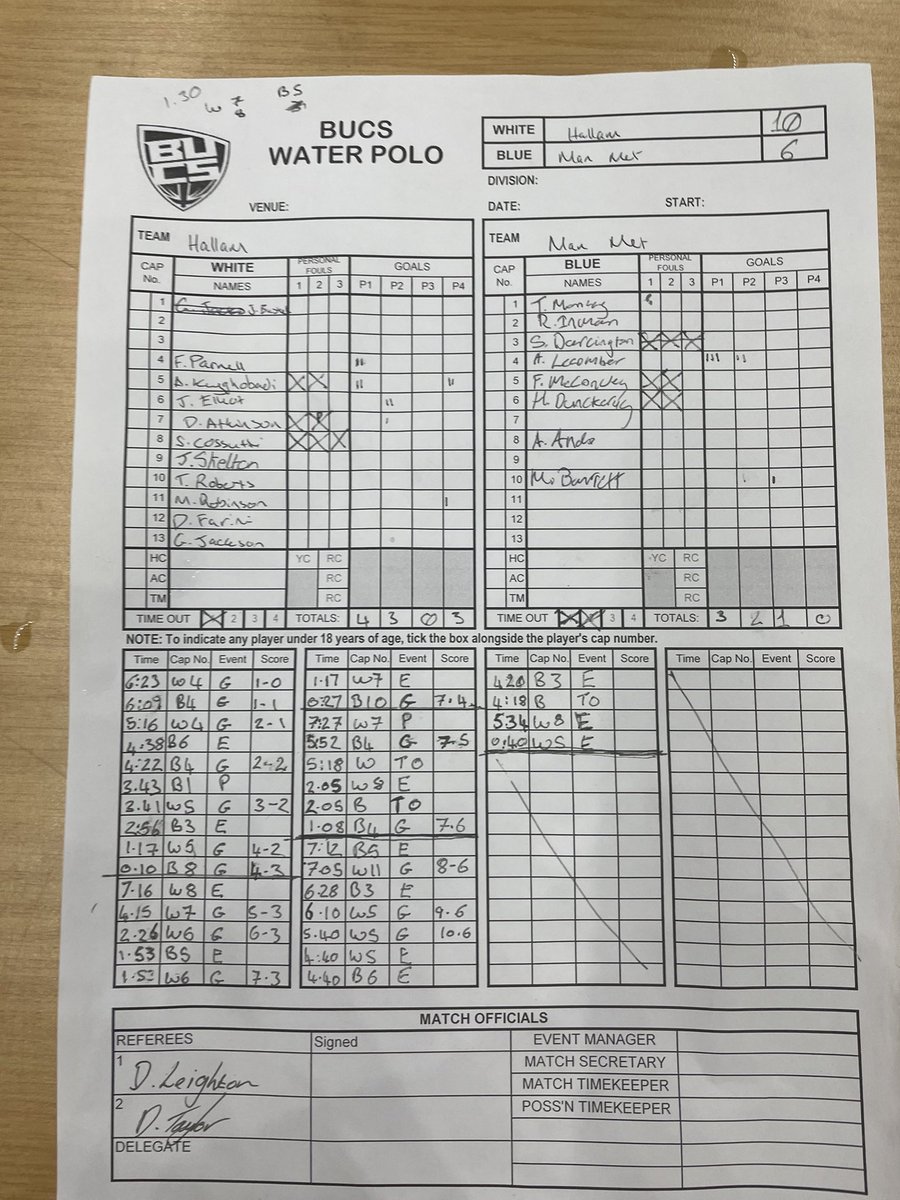 1.30 W 7 B5
8
BUCS
WATER POLO
WHITE Hallam 10
BLUE Man Met 6
DIVISION:
VENUE: DATE: START:
TEAM Hallam
CAP No. WHITE NAMES PERSONAL FOULS 1 2 3 GOALS P1 P2 P3 P4
1
2
3
4 F. Parnell II
5 X X II II
6 J. Elliot II
7 D. Atkinson X P I
8 X X X
9 J. Skelton
10 T. Roberts
11 M. Robinson I
12 D. Farini
13 G. Jackson
HC YC RC
AC RC
TM RC
TIME OUT X 2 3 4 TOTALS: 4 3 0 3
TEAM Man Met
CAP No. BLUE NAMES PERSONAL FOULS 1 2 3 GOALS P1 P2 P3 P4
1
2 R. Inman
3 S. Darlington X X X
4 A. Lecomber III II
5 X X
6 X X
7
8 A. Ando
9
10 M. Barrett I I
11
12
13
HC YC RC
AC RC
TM RC
TIME OUT X X 3 4 TOTALS: 3 2 1 0
NOTE: To indicate any player under 18 years of age, tick the box alongside the player's cap number.
Time Cap No. Event Score
6:23 W4 G 1-0
6:09 B4 G 1-1
5:16 W4 G 2-1
4:38 B6 E
4:22 B4 G 2-2
3.43 B1 P
3.41 W5 G 3-2
2:56 B3 E
1.17 W5 G 4-2
0.10 B8 G 4-3
7.16 W8 E
4.15 W7 G 5-3
2.26 W6 G 6-3
1.53 B5 E
1.53 W6 G 7.3
Time Cap No. Event Score
1.17 W7 E
0:27 B10 G 7.4
7:27 W7 P
5:52 B4 G 7-5
5:18 W TO
2.05 W8 E
2.05 B TO
1.08 B4 G 7.6
7:12 B5 E
7.05 W11 G 8-6
6.28 B3 E
6.10 W5 G 9.6
5.40 W5 G 10.6
4:40 W5 E
4.40 B6 E
Time Cap No. Event Score
4.20 B3 E
4:18 B TO
5.34 W8 E
0:40 W5 E
Time Cap No. Event Score
MATCH OFFICIALS
REFEREES Signed
1 D. Leighton
2 D. Taylor
DELEGATE
EVENT MANAGER
MATCH SECRETARY
MATCH TIMEKEEPER
POSS'N TIMEKEEPER